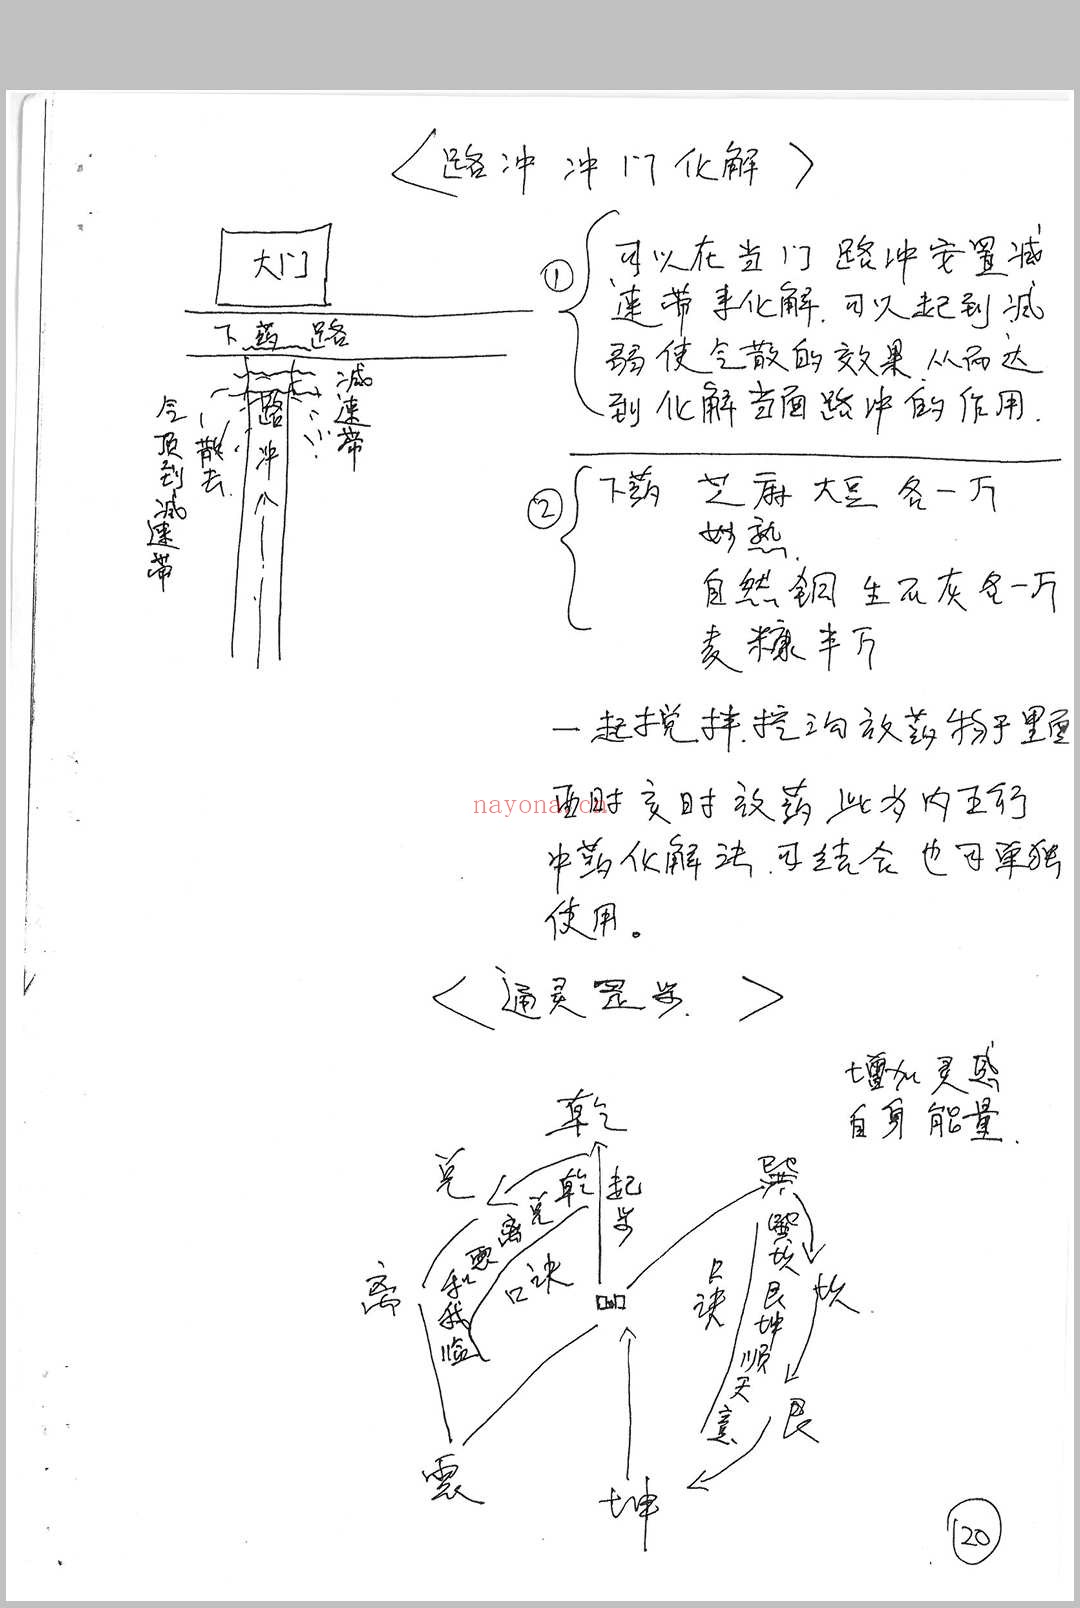 <路冲冲门化解>
大门
下药路
减速带
路冲
散去
令顶到减速带
① 可以在当门路冲安置减
速带来化解.可以起到减
弱使令散的效果.从而达
到化解当面路冲的作用.
② 下药 芝麻大豆各一斤
炒熟.
自然铜生石灰各一斤
麦糠半斤
一起搅拌.挖沟放药物于里面
酉时亥时放药此为内五行
中药化解法.可结合也可单独
使用。
nayona.cn
<通灵罡步.>
增加灵感
自身能量.
乾
兑
离
震
起步
乾兑离震和我临
口诀
巽
坎.
艮
坤
口诀
巽坎艮坤顺天意
20